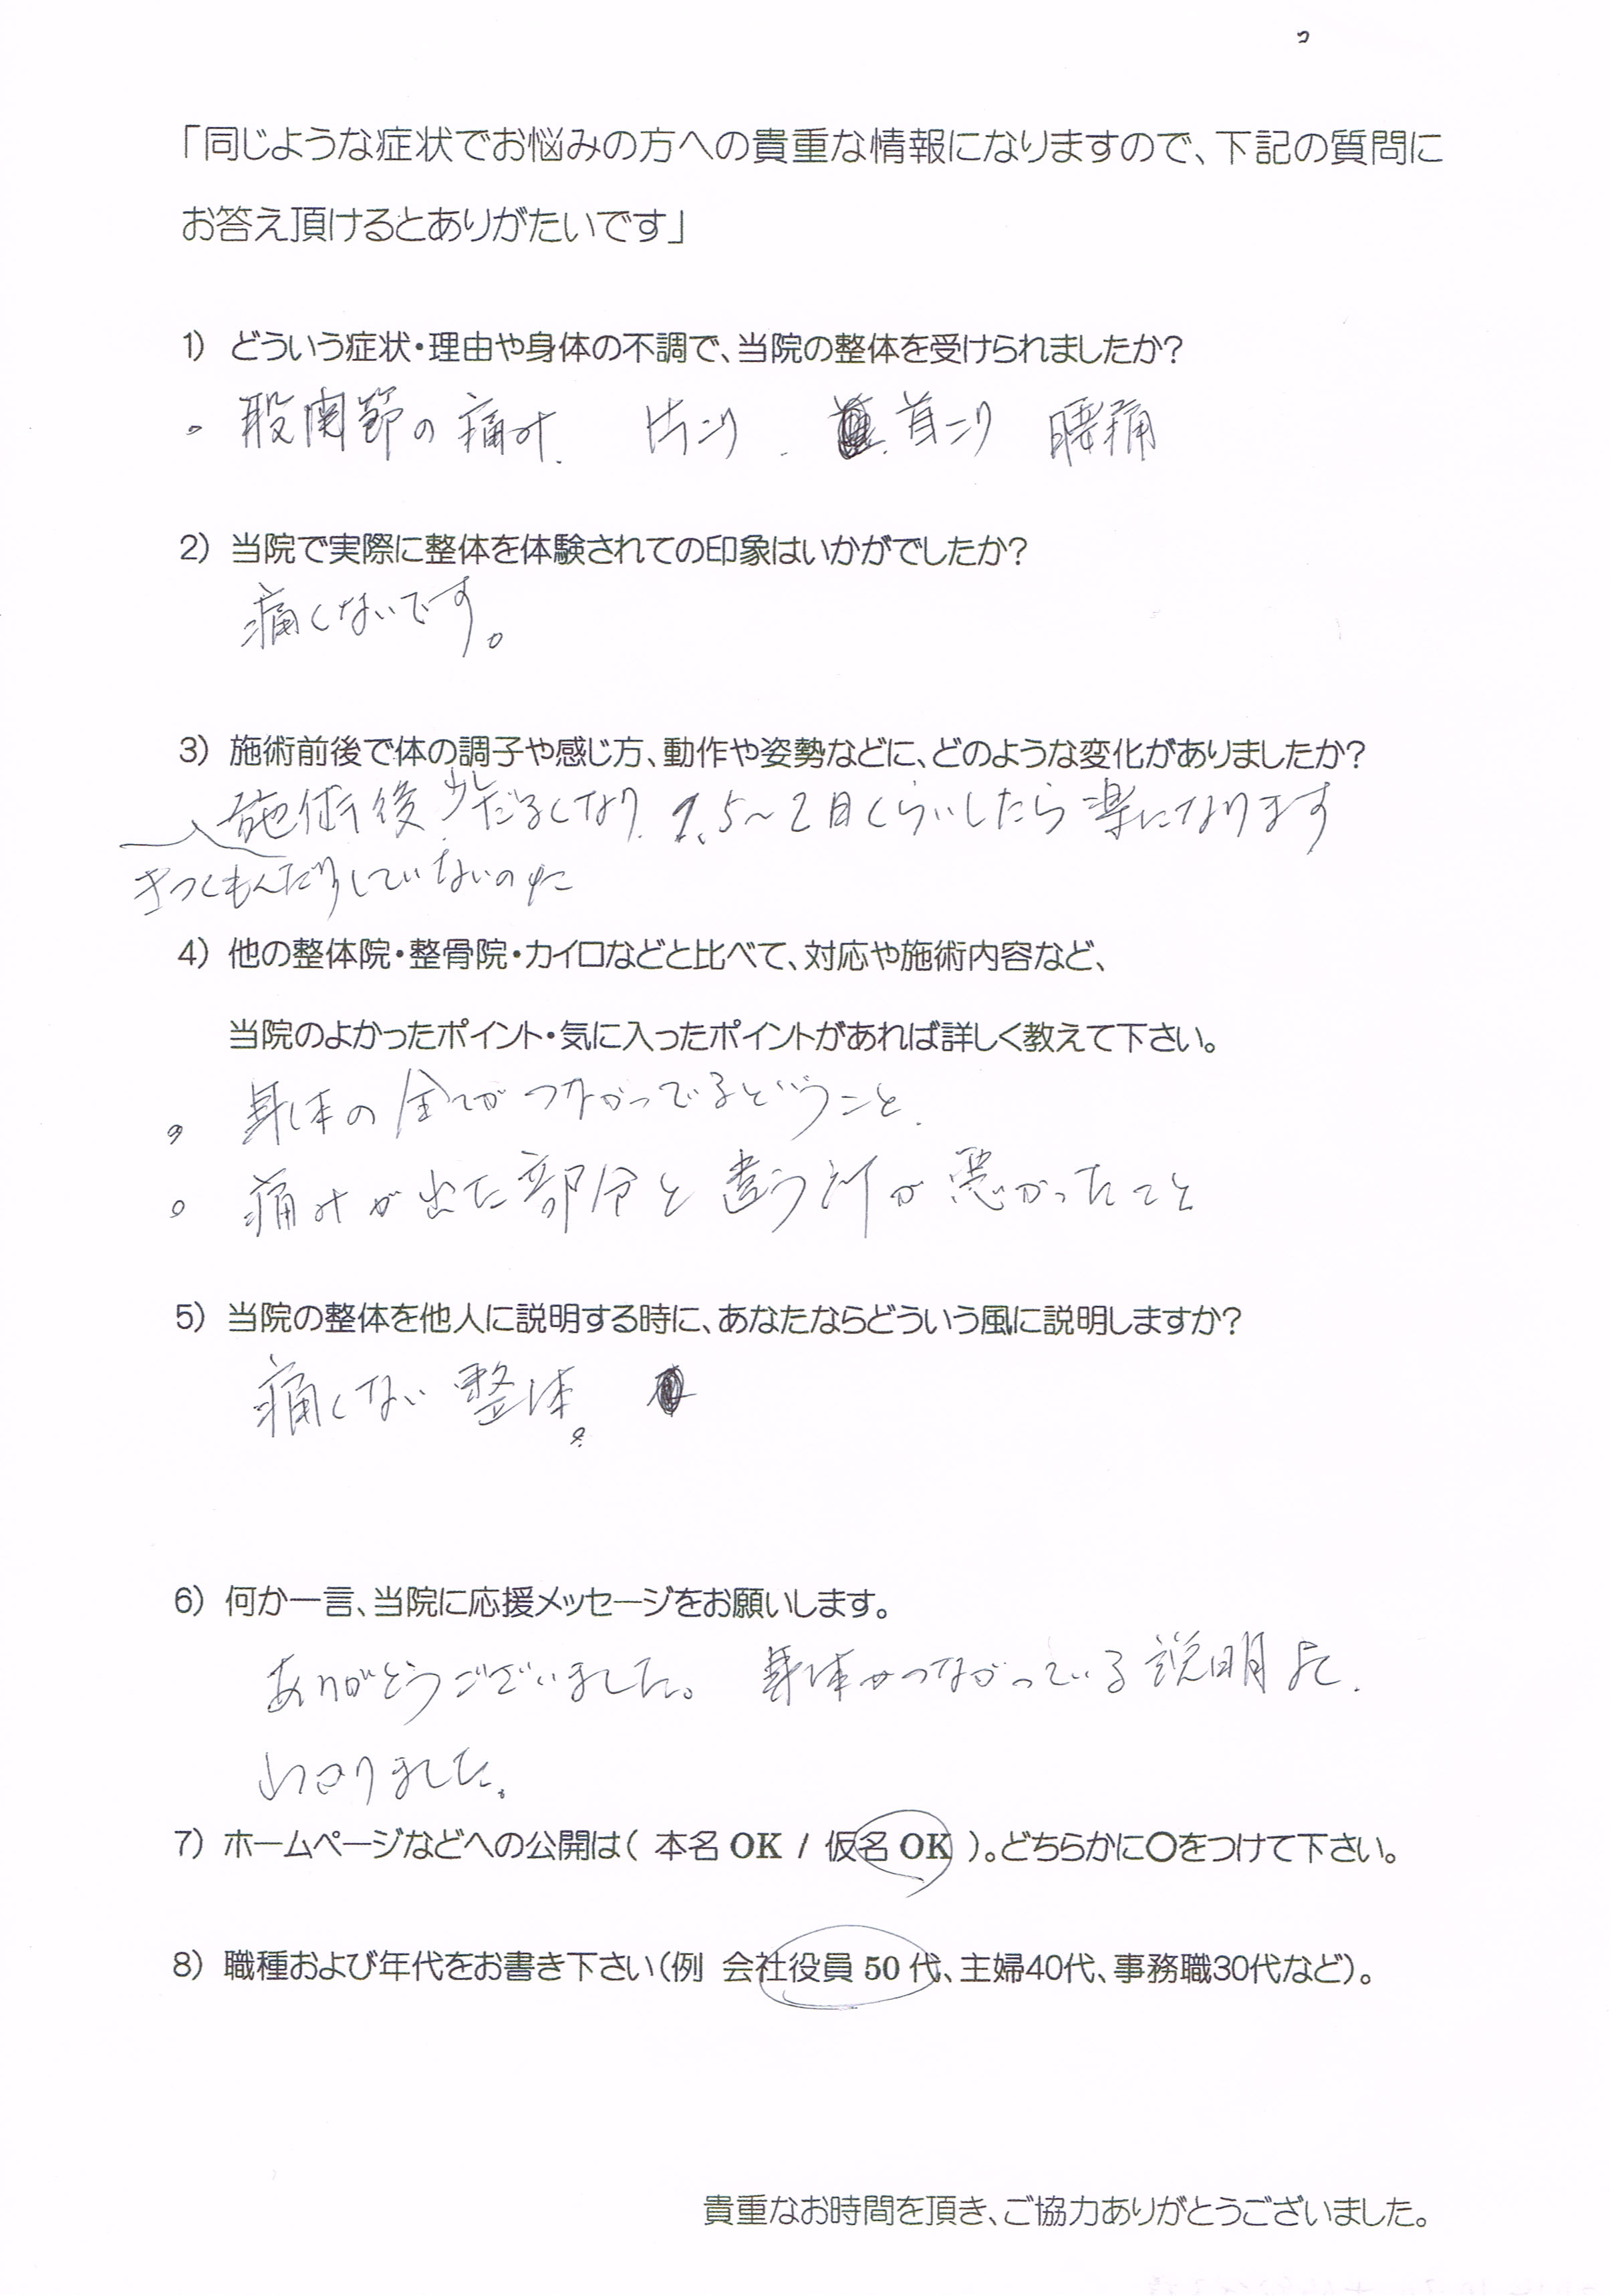 「同じような症状でお悩みの方への貴重な情報になりますので、下記の質問に
お答え頂けるとありがたいです」
1) どういう症状・理由や身体の不調で、当院の整体を受けられましたか?
。股関節の痛み. 片こり. 首こり 腰痛
2) 当院で実際に整体を体験されての印象はいかがでしたか?
痛くないです。
3) 施術前後で体の調子や感じ方、動作や姿勢などに、どのような変化がありましたか?
施術後少しだるくなり. 1.5~2日くらいしたら楽になります
きつくもんだりしていないのに
4) 他の整体院・整骨院・カイロなどと比べて、対応や施術内容など、
当院のよかったポイント・気に入ったポイントがあれば詳しく教えて下さい。
。身体の全てがつながってるということ.
。痛みが出た部分と違う所が悪かったこと
5) 当院の整体を他人に説明する時に、あなたならどういう風に説明しますか?
痛くない整体。
6) 何か一言、当院に応援メッセージをお願いします。
ありがとうございました。 身体がつながっている説明よく.
わかりました。
7) ホームページなどへの公開は( 本名 OK / 仮名 OK )。どちらかに〇をつけて下さい。
8) 職種および年代をお書き下さい(例 会社役員 50 代、主婦40代、事務職30代など)。
貴重なお時間を頂き、ご協力ありがとうございました。